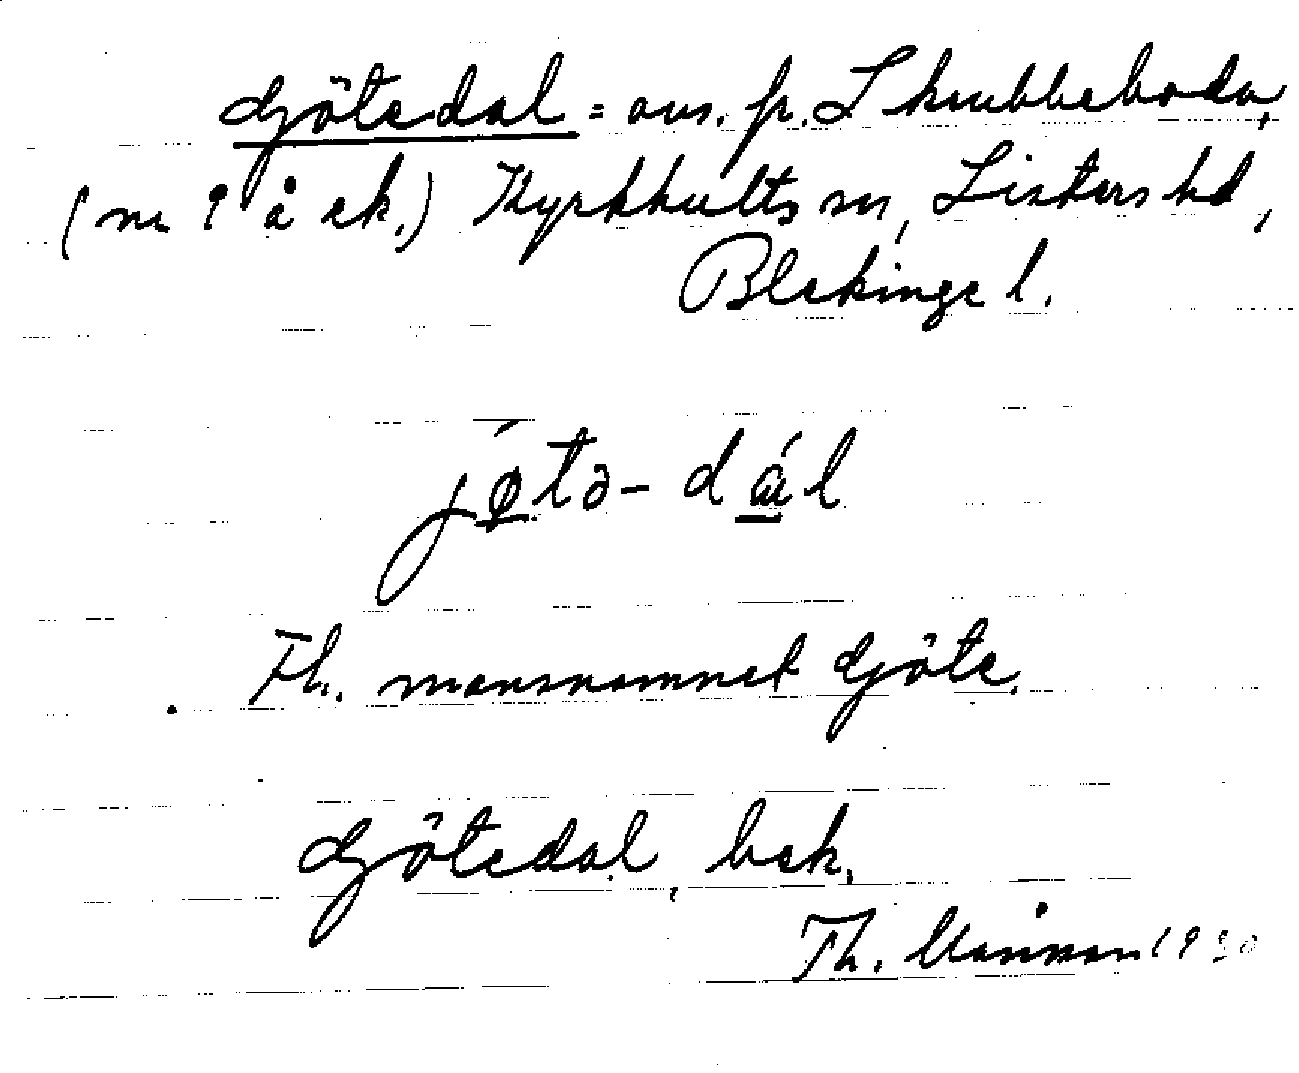 Götedal = avs. fr. Skrubbeboda,
(nr 9 å ek.) Kyrkhults sn, Listers hd,
Blekinge l.
jǿ̱tə-dɑ̱́l
Fh. mansnamnet Göte.
Götedal, bek.
Th. 1930